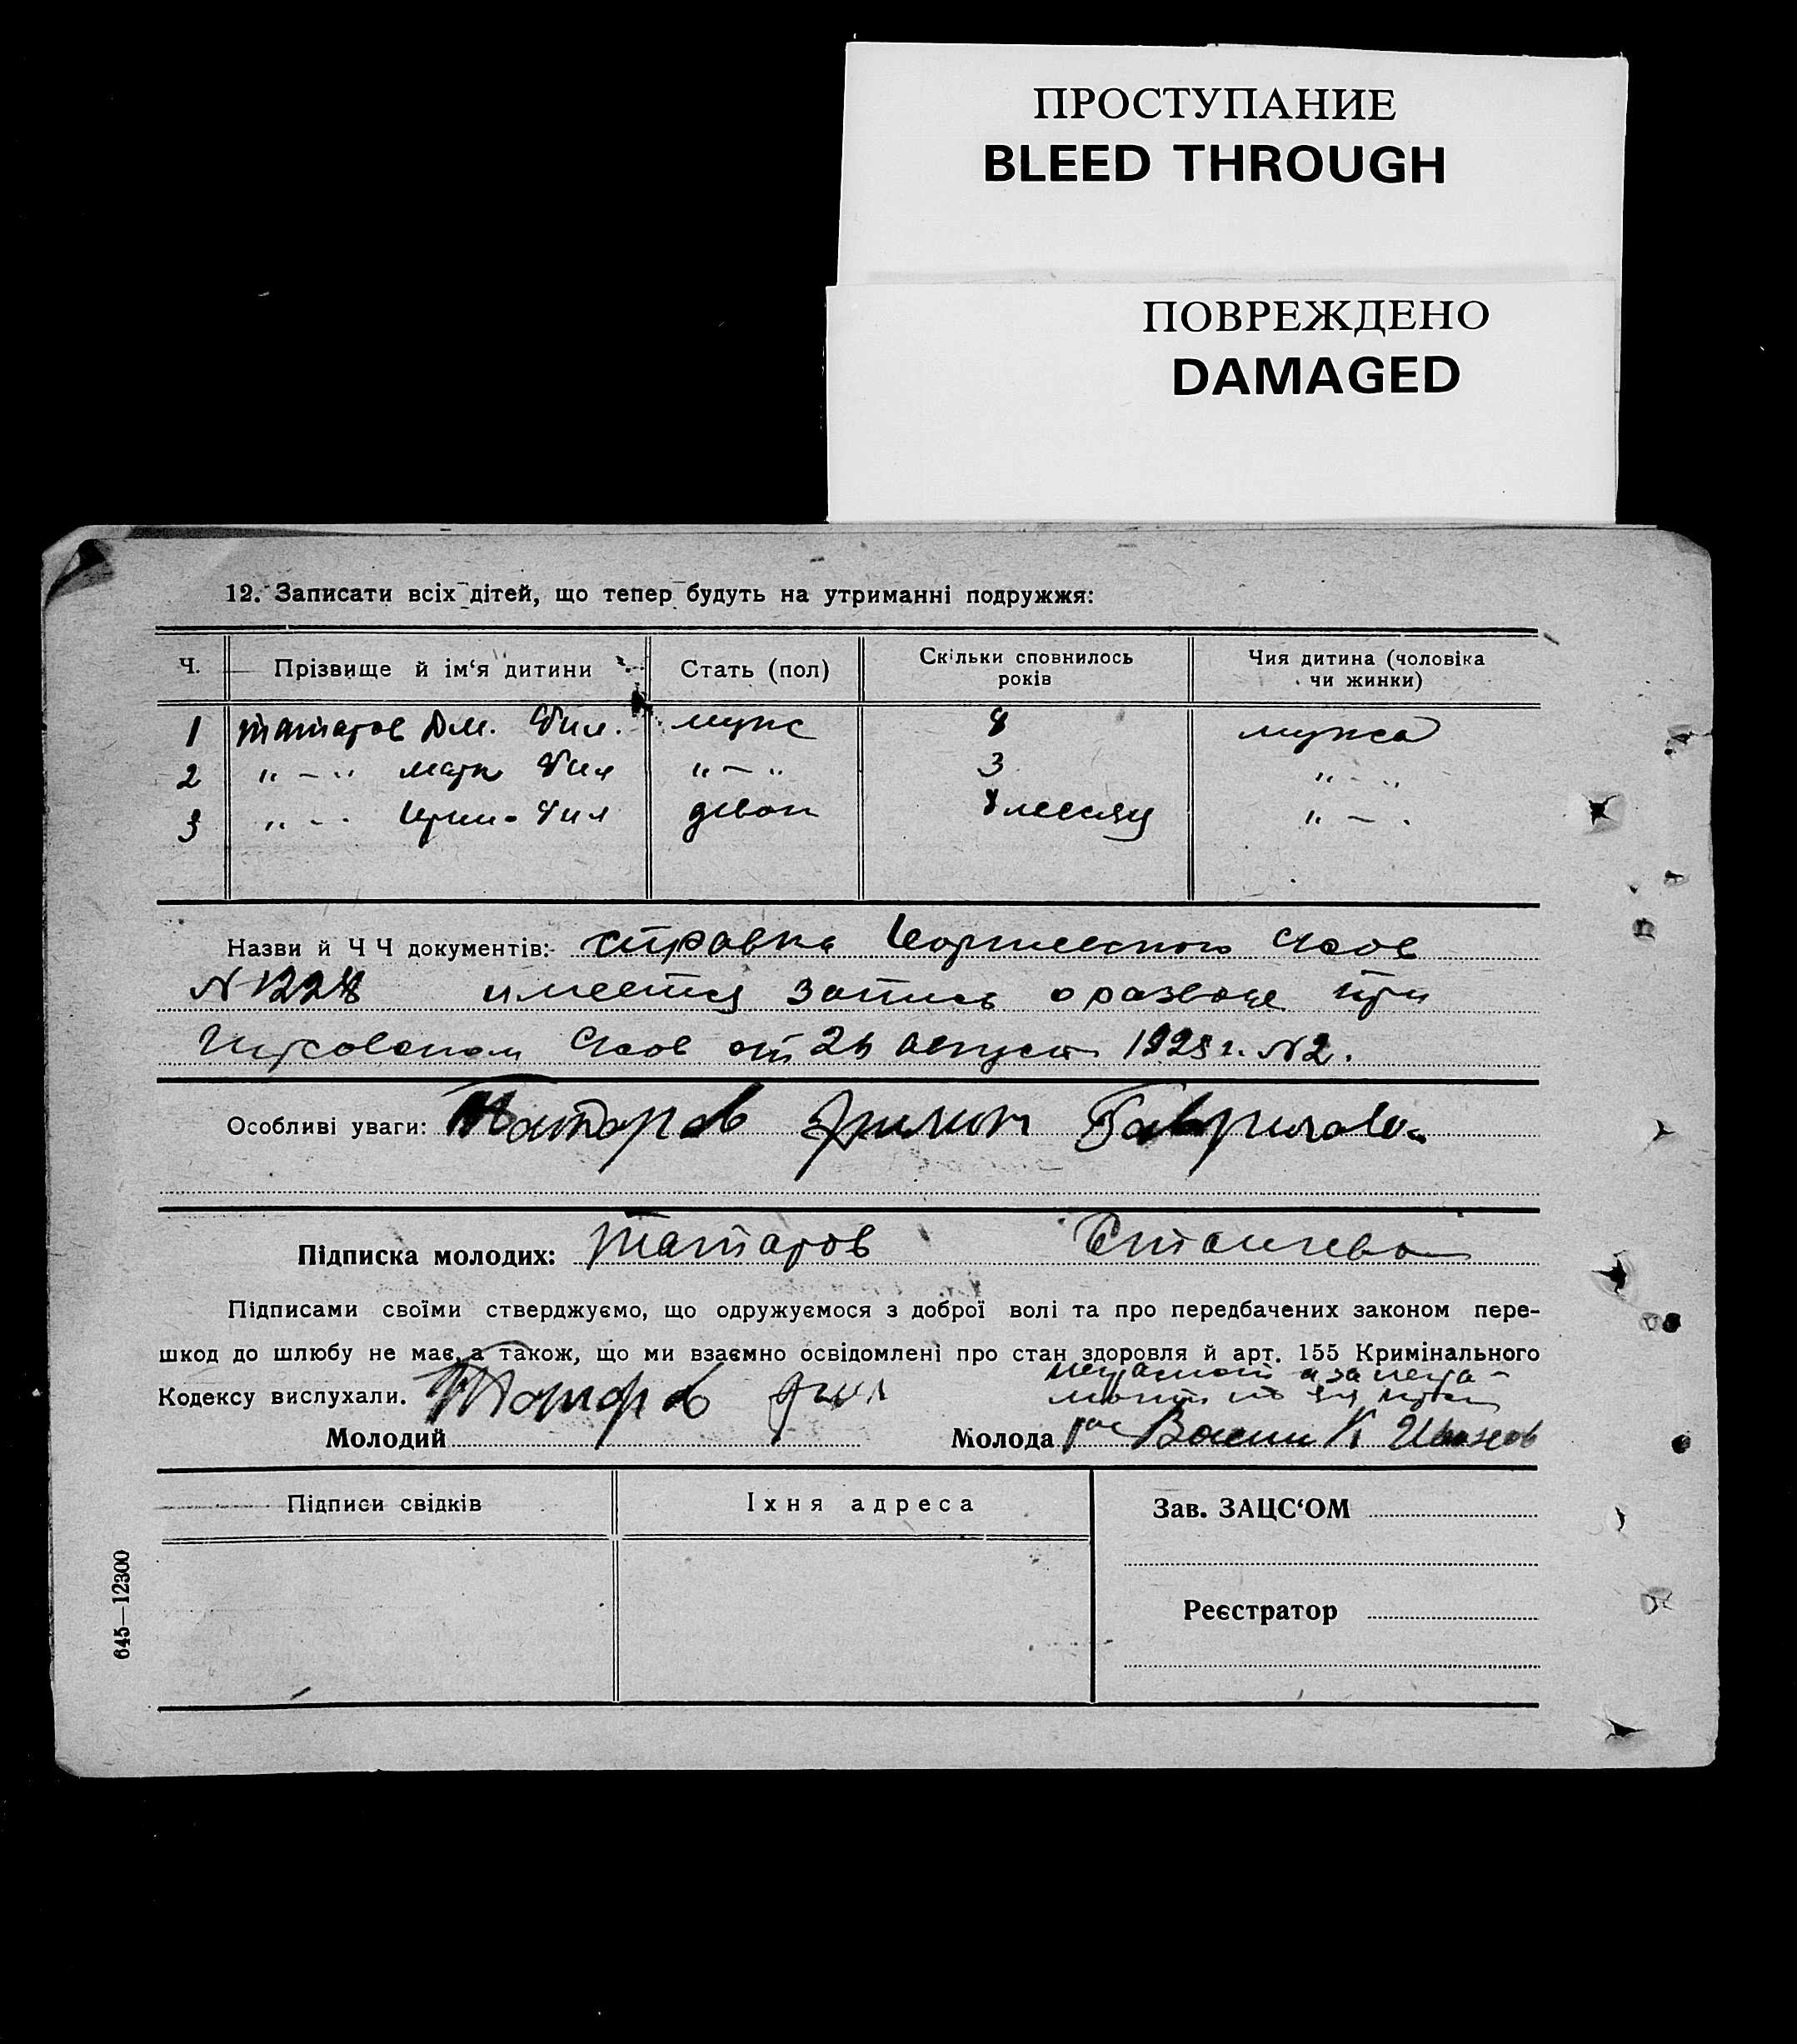 ПРОСТУПАНИЕ
BLEED THROUGH
ПОВРЕЖДЕНО
DAMAGED
12. Записати всіх дітей, що тепер будуть на утриманні подружжя:
Ч. Прізвище й ім‘я дитини Стать (пол) Скільки сповнилось років Чия дитина (чоловіка чи жинки)
1 Татаров Дм. Фил. мужс 8 мужса
2 " – " Марк Фил " – " 3 " – "
3 " – " Фил девоч 8 месяц " – "
Назви й Ч Ч документів: справка Загс
N 1228 имеется запись о разводе при
Загсе от августа 1928 г. N2.
Особливі уваги: Татаров Филип Гаврилов
Підписка молодих: Татаров
Підписами своїми стверджуємо, що одружуємося з доброї волі та про передбачених законом пере-
шкод до шлюбу не має, а також, що ми взаємно освідомлені про стан здоровля й арт. 155 Кримінального
Кодексу вислухали. Татаров Фил
неграмотн а за негра-
мотн
Молодий Молода К Иванов
Підписи свідків Їхня адреса Зав. ЗАЦС‘ОМ
Реєстратор
645—12300